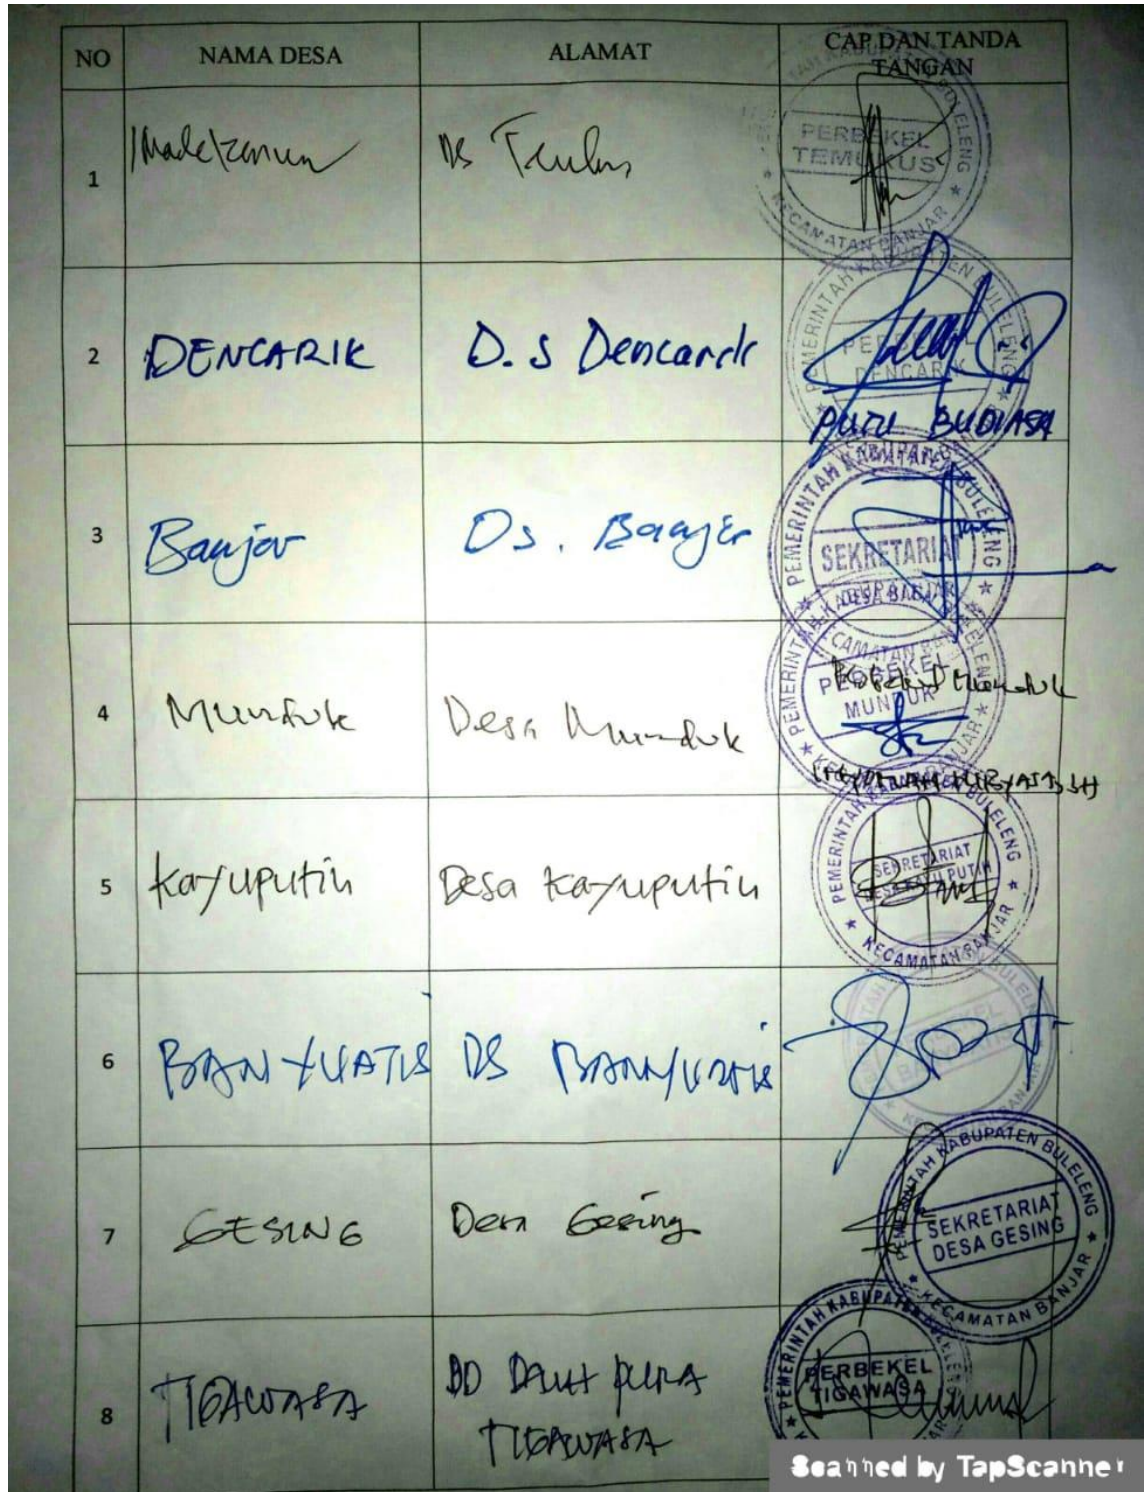 NO NAMA DESA ALAMAT CAP DAN TANDA TANGAN
1 I Made DS
PERBEKEL
TEMUKUS
KECAMATAN BANJAR
2 DENCARIK D.S Dencarik
PEMERINTAH KABUPATEN BULELENG
DENCARIK
PUTU BUDIASA
3 Banjar Ds. Banjar
PEMERINTAH KABUPATEN BULELENG
SEKRETARIAT
4 Munduk Desa Munduk
PERBEKEL
MUNDUK
Munduk
5 Kayuputih Desa Kayuputih
PEMERINTAH KABUPATEN BULELENG
SEKRETARIAT
DESA KAYU PUTIH
KECAMATAN BANJAR
6 BANYUATIS DS BANYUATIS
7 GESING Desa Gesing
PEMERINTAH KABUPATEN BULELENG
SEKRETARIAT
DESA GESING
KECAMATAN BANJAR
8 TIGAWASA BD DAUH PURA
TIGAWASA
PEMERINTAH KABUPATEN BULELENG
PERBEKEL
TIGAWASA
Scanned by TapScanner